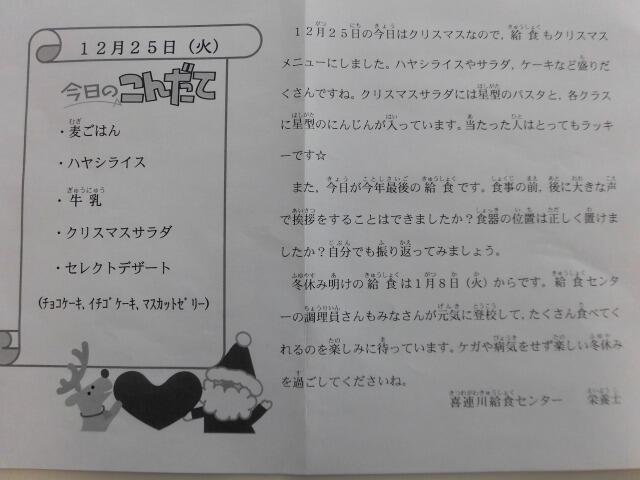 12月25日(火)
今日のこんだて
・麦ごはん
・ハヤシライス
・牛乳
・クリスマスサラダ
・セレクトデザート
(チョコケーキ、イチゴケーキ、マスカットゼリー)
12月25日の今日はクリスマスなので,給食もクリスマス
メニューにしました。ハヤシライスやサラダ,ケーキなど盛りだ
くさんですね。クリスマスサラダには星型のパスタと,各クラス
に星型のにんじんが入っています。当たった人はとってもラッキ
ーです☆
また,今日が今年最後の給食です。食事の前,後に大きな声
で挨拶をすることはできましたか?食器の位置は正しく置けま
したか?自分でも振り返ってみましょう。
冬休み明けの給食は1月8日(火)からです。給食センタ
ーの調理員さんもみなさんが元気に登校して,たくさん食べてく
れるのを楽しみに待っています。ケガや病気をせず楽しい冬休み
を過ごしてくださいね。
喜連川給食センター 栄養士